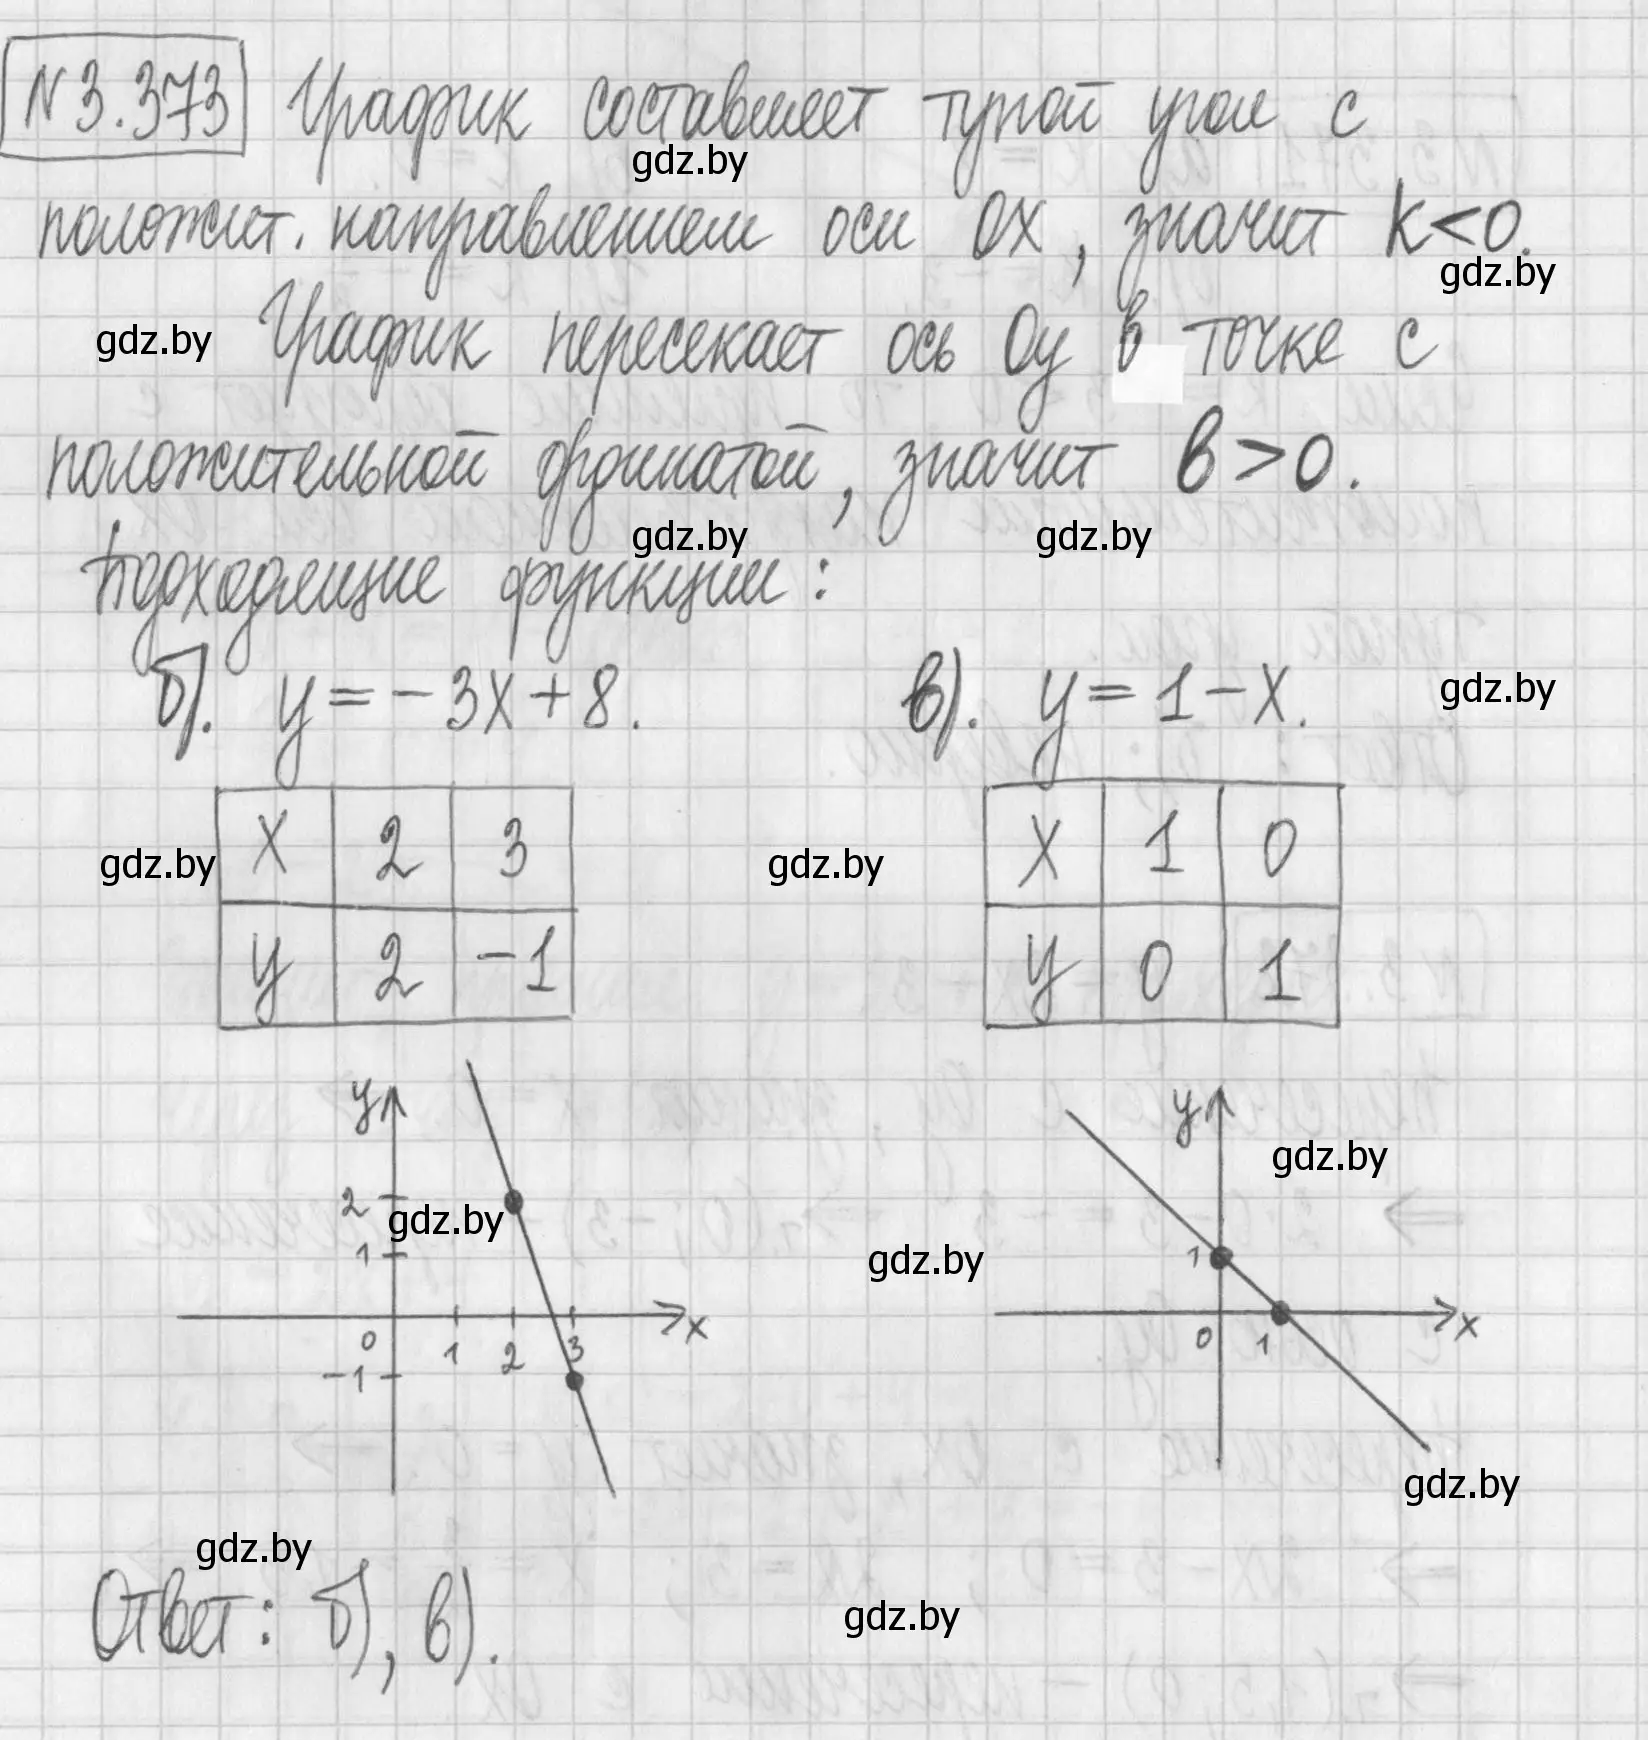 N 3.373 График составляет тупой угол с
gdz.by
полoжит. направлением оси Ox, значит k<0.
gdz.by
gdz.by График пересекает ось Oy в точке с
положительной ординатой, значит b>0.
gdz.by gdz.by
Подходящие функции:
б). y=-3x+8. в). y=1-x. gdz.by
gdz.by x 2 3 gdz.by x 1 0
y 2 -1 y 0 1
y y
gdz.by
2 gdz.by
1 gdz.by 1
x x
0 1 2 3 0 1
-1
gdz.by
gdz.by
Ответ: б), в). gdz.by